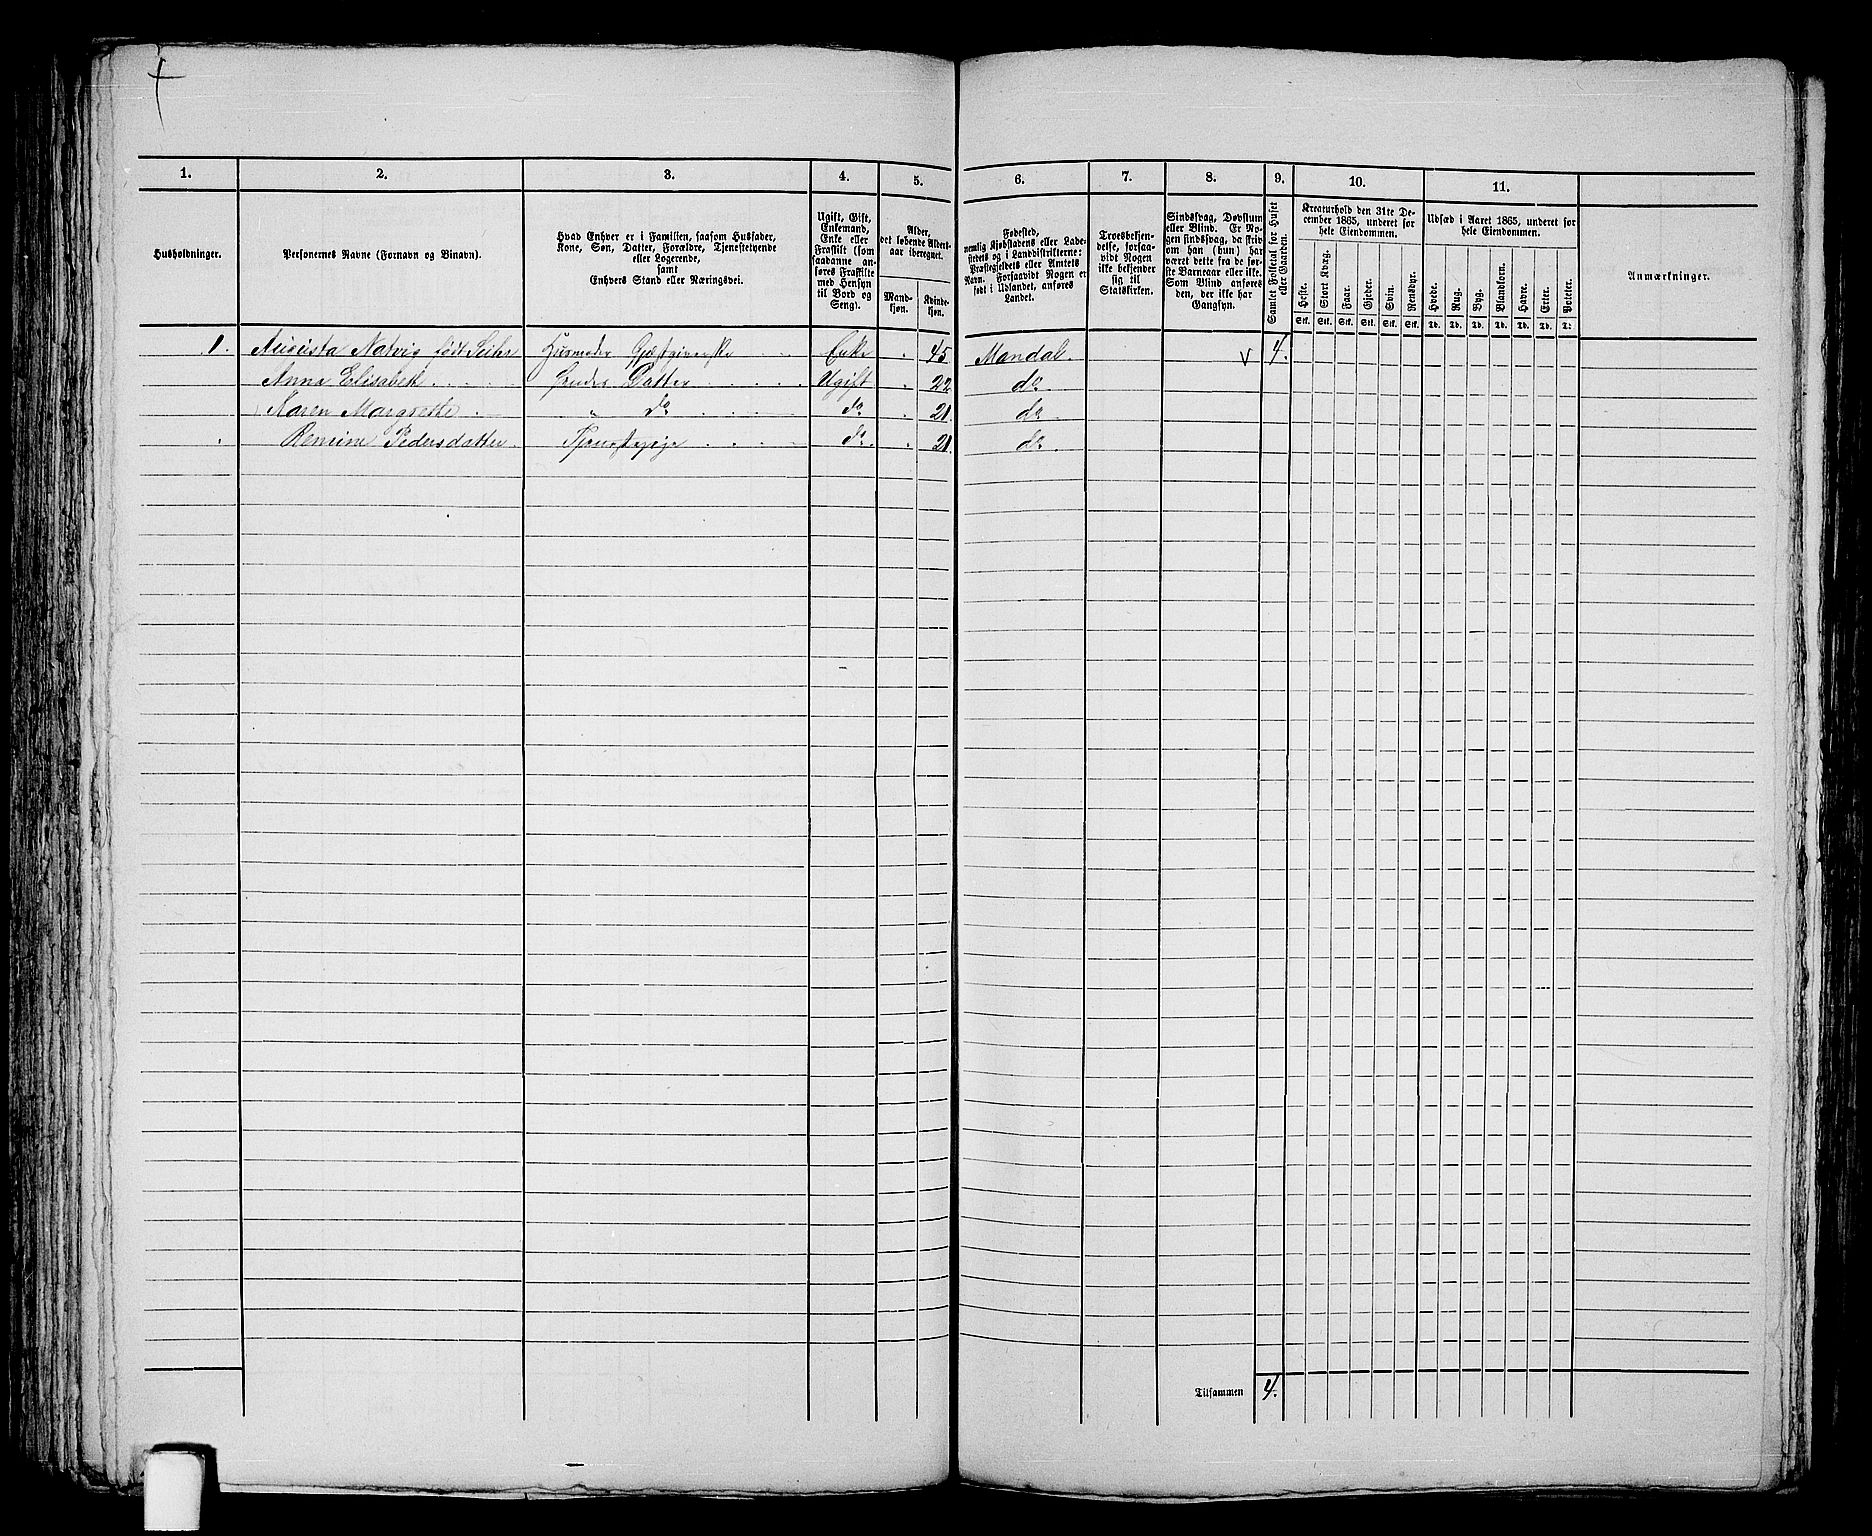 1. 2. 3. 4. 5. 6. 7. 8. 9. 10. 11.
Husholdninger.
Personernes Navne (Fornavn og Binavn).
Hvad Enhver er i Familien, saasom Husfader,
Kone, Søn, Datter, Forældre, Tjenestetyende
eller Logerende,
samt
Enhvers Stand eller Næringsvei.
Ugift, Gift,
Enkemand,
Enke eller
Fraskilt (som
saadanne an-
føres Fraskilte
med Hensyn
til Bord og
Seng).
Alder,
det løbende Alders-
aar iberegnet.
Mand-
kjøn.
Kvinde-
kjøn.
Fødested,
nemlig Kjøbstadens eller Lade-
stedets og i Landdistrikterne:
Præstegjeldets eller Amtets
Navn. Forsaavidt Nogen er
født i Udlandet, anføres
Landet.
Troesbekjen-
delse, forsaa-
vidt Nogen
ikke bekjender
sig til
Statskirken.
Sindssvag, Døvstum
eller Blind. Er No-
gen sindssvag, da skriv
om han (hun) har
været dette fra de før-
ste Barneaar eller ikke.
Som Blind anføres
den, der ikke har
Gangsyn.
Samlet Folketal for Huset
eller Gaarden.
Kreaturhold den 31te De-
cember 1865, underet for
hele Eiendommen.
Heste. Stort Kvæg. Faar. Gjeder. Svin. Rensdyr.
Stk. Stk. Stk. Stk. Stk. Stk.
Udsæd i Aaret 1865, underet for
hele Eiendommen.
Hvede. Rug. Byg. Blandkorn. Havre. Erter. Poteter.
Td. Td. Td. Td. Td. Td. Td.
Anmærkninger.
1. Augusta Natvig født Huusmoder Gjæstgiverske Enke 45 Mandal. 4.
Anna Elisabeth Hendes Datter Ugift 22 do
Karen Margrethe „ do do 21. do
Pedersdatter Tjenestepige do. 21. do
Tilsammen 4.